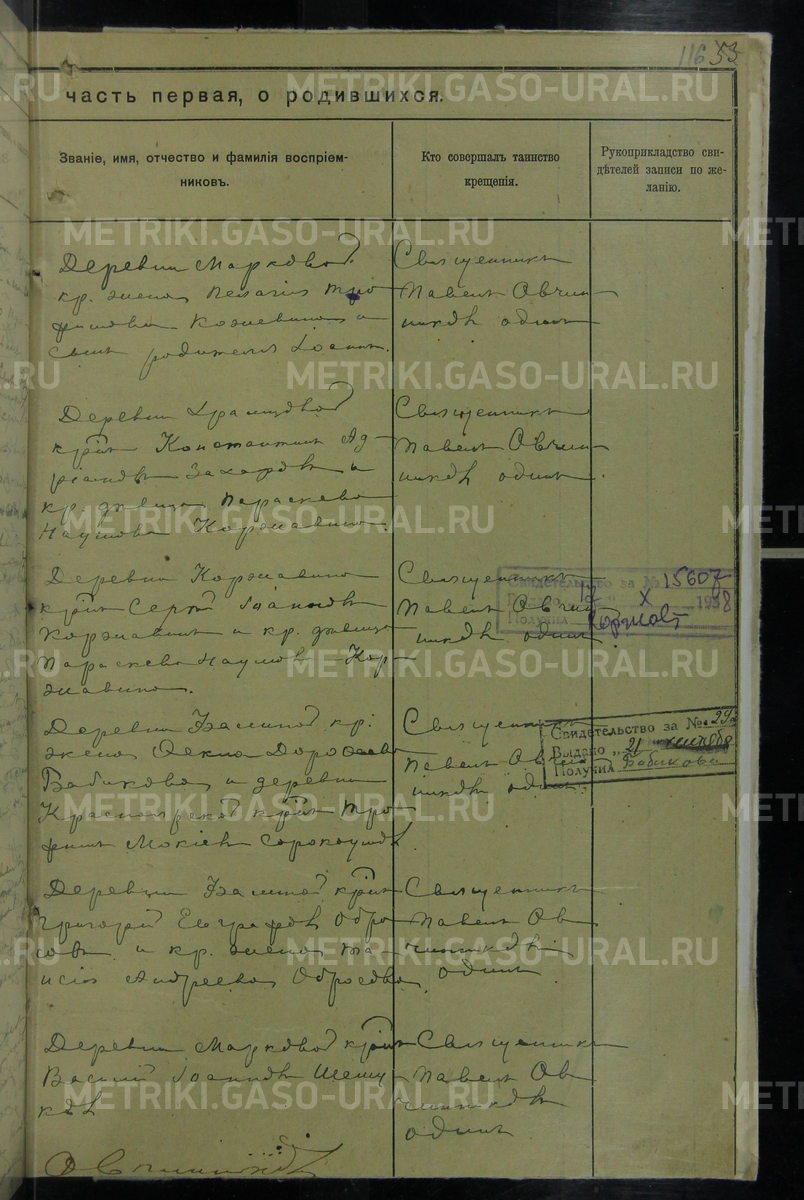 116 53
часть первая, о родившихся.
Званіе, имя, отчество и фамилія воспріем-
никовъ.
Кто совершалъ таинство
крещенія.
Рукоприкладство сви-
дѣтелей записи по же-
ланію.
Деревни Марковой
кр. жена Пелагія Тро
фимова Кожевина и
родителя Іоанн.
Священникъ
Павелъ Овчин
никовъ один
Деревни
крнъ Константин Ад-
ріановъ Захаровъ и
кр. девица Параскева
Наумова Коржавина.
Священникъ
Павелъ Овчин
никовъ один
Деревни Коржавино
крнъ Сергй Іоанновъ
Коржавинъ и кр. девица
Параскева Наумов Кор
жавина.
Священникъ
Павелъ Овчин
никовъ один
Свидетельство за № 15607
X 1938
Получил
Деревни кр.
жена Фекла Дорофеева
Бабикова и деревни
Красноярской крнъ Тро
фимъ Мокіевъ Сорокоумовъ
Священникъ
Павелъ Овчин
никовъ один
Свидетельство за № 292
Выдано „ 21
Получил Бабикова
Деревни крнъ
Григорій Евграфовъ Обро
совъ и кр. жена Та
исія Андреева Обросова.
Священникъ
Павелъ Ов
чинниковъ
один
Деревни Марковой крнъ
Василій Іоанновъ Шешу
ковъ
Священникъ
Павелъ Ов
чинниковъ
один
Овчинниковъ
METRIKI.GASO-URAL.RU